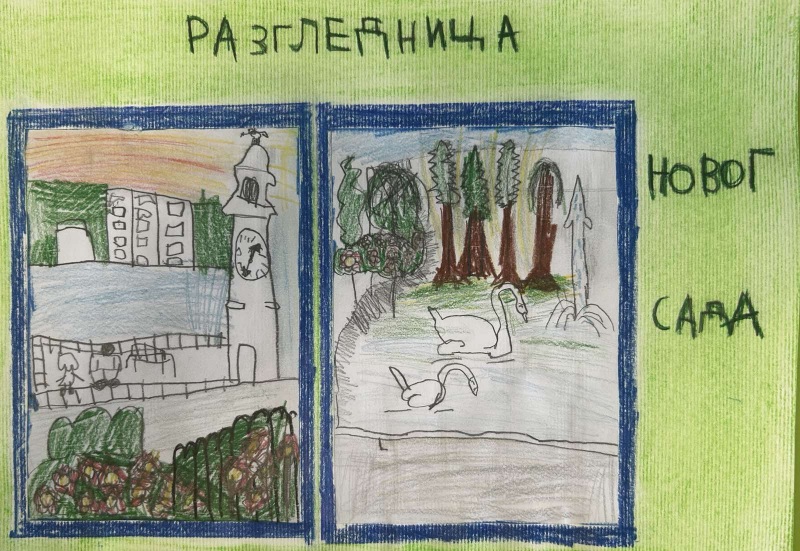 РАЗГЛЕДНИЦА
НОВОГ
САДА